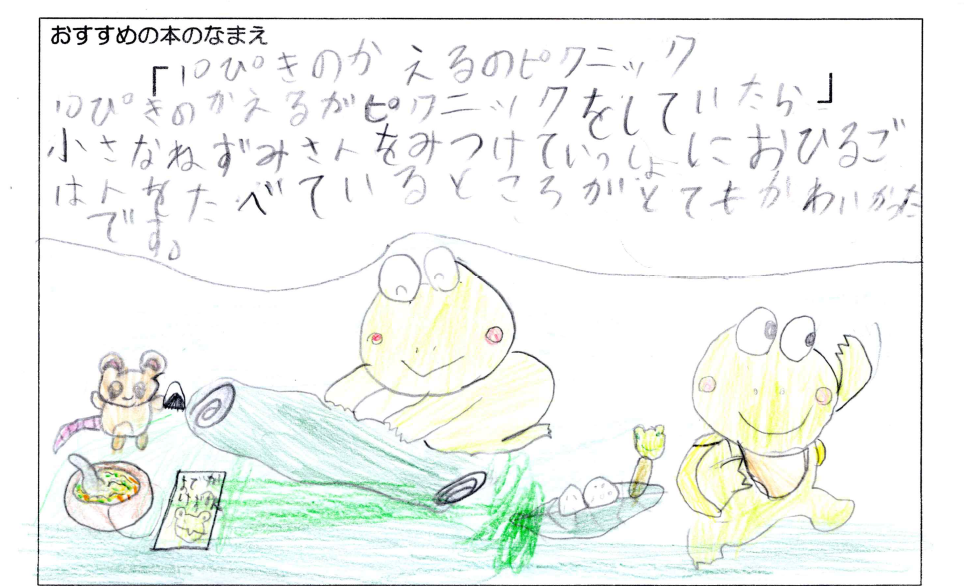 おすすめの本のなまえ
「10ぴきのかえるのピクニック
10ぴきのかえるがピクニックをしていたら」
小さなねずみさんをみつけていっしょにおひるご
はんをたべているところがとてもかわいかった
です。